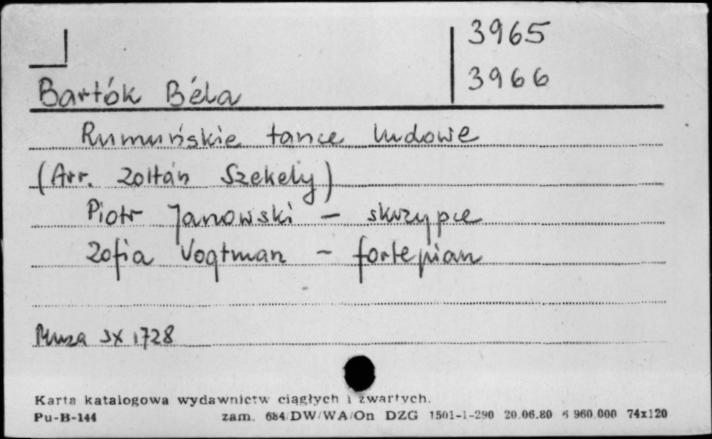 3965
3966
Bartók Béla
Rumuńskie tańce ludowe
(Arr. Zoltán Szekely)
Piotr Janowski – skrzypce
Zofia Vogtman – fortepian
Muza SX 1728
Karta katalogowa wydawnictw ciągłych i zwartych.
Pu-B-144 zam. 684/DW/WA/On DZG 1501-1-290 20.06.80 6 960.000 74x120